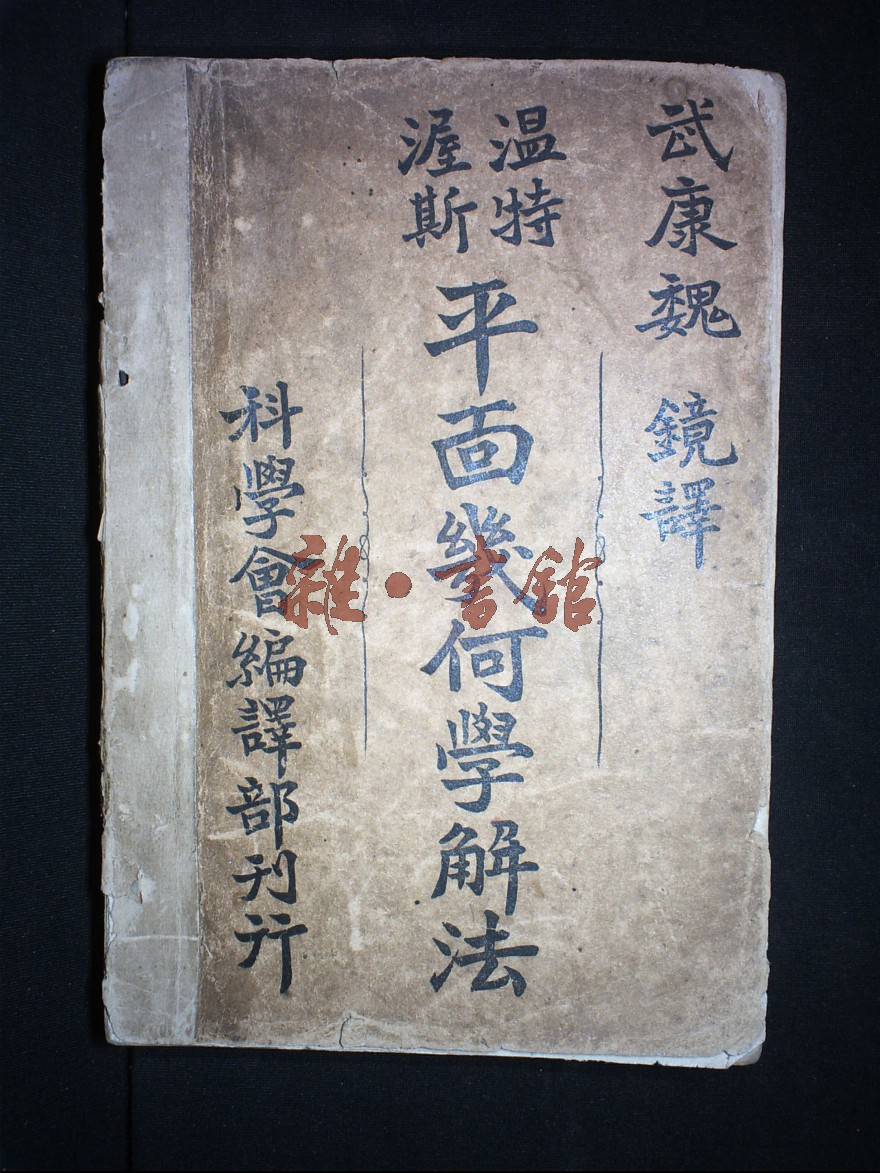 武康魏鏡譯
温特
渥斯
平面幾何學解法
科學會編譯部刊行
雜·書館